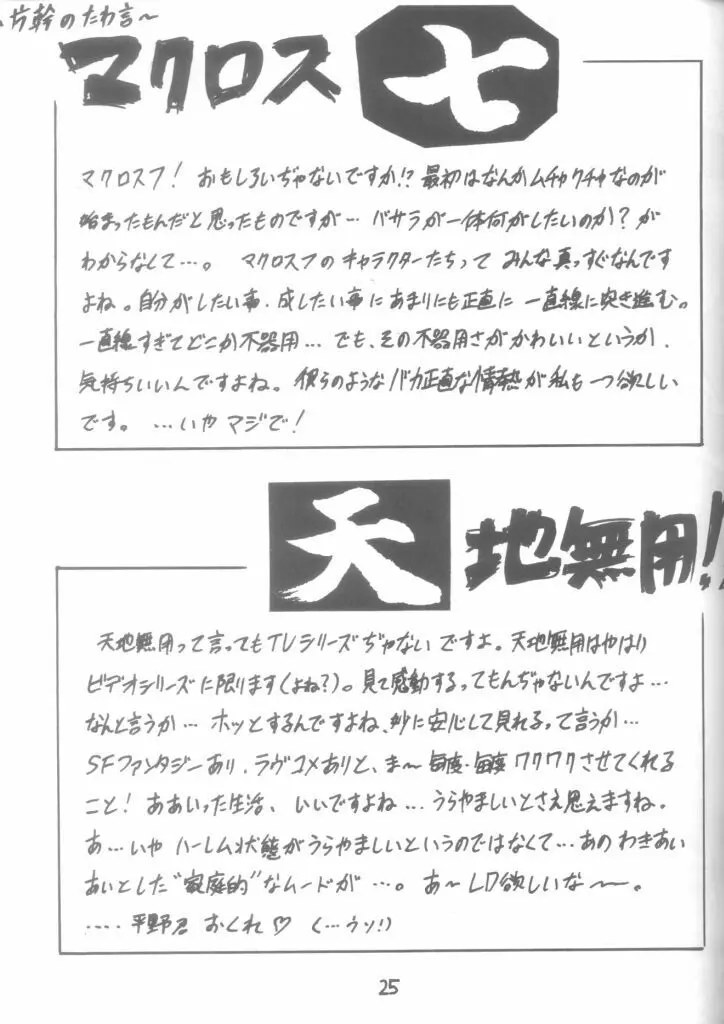 片幹のたわ言〜
マクロス七
マクロス7! おもしろいぢゃないですか!? 最初はなんかムチャクチャなのが
始まったもんだと思ったものですが… バサラが一体何がしたいのか?が
わからなくて…。 マクロス7のキャラクターたちって みんな真っすぐなんです
よね。自分がしたい事、成したい事にあまりにも正直に 一直線に突き進む。
一直線すぎてどこか不器用… でも、その不器用さがかわいいというか、
気持ちいいんですよね。彼らのようなバカ正直な情熱が私も一つ欲しい
です。 …いや マジで!
天地無用!
天地無用って言ってもTVシリーズぢゃないですよ。天地無用はやはり
ビデオシリーズに限ります(よね?)。見て感動するってもんぢゃないんですよ…
なんと言うか… ホッとするんですよね、妙に安心して見れるって言うか…
SFファンタジーあり、ラヴコメありと、ま〜 毎度・毎度ワクワクさせてくれる
こと! ああいった生活、いいですよね… うらやましいとさえ思えますね。
あ…いや ハーレム状態がうらやましいというのではなくて… あの わきあい
あいとした"家庭的"なムードが …。 あ〜 LD欲しいな〜。
…… 平野君 おくれ♡ (…ウソ!)
25